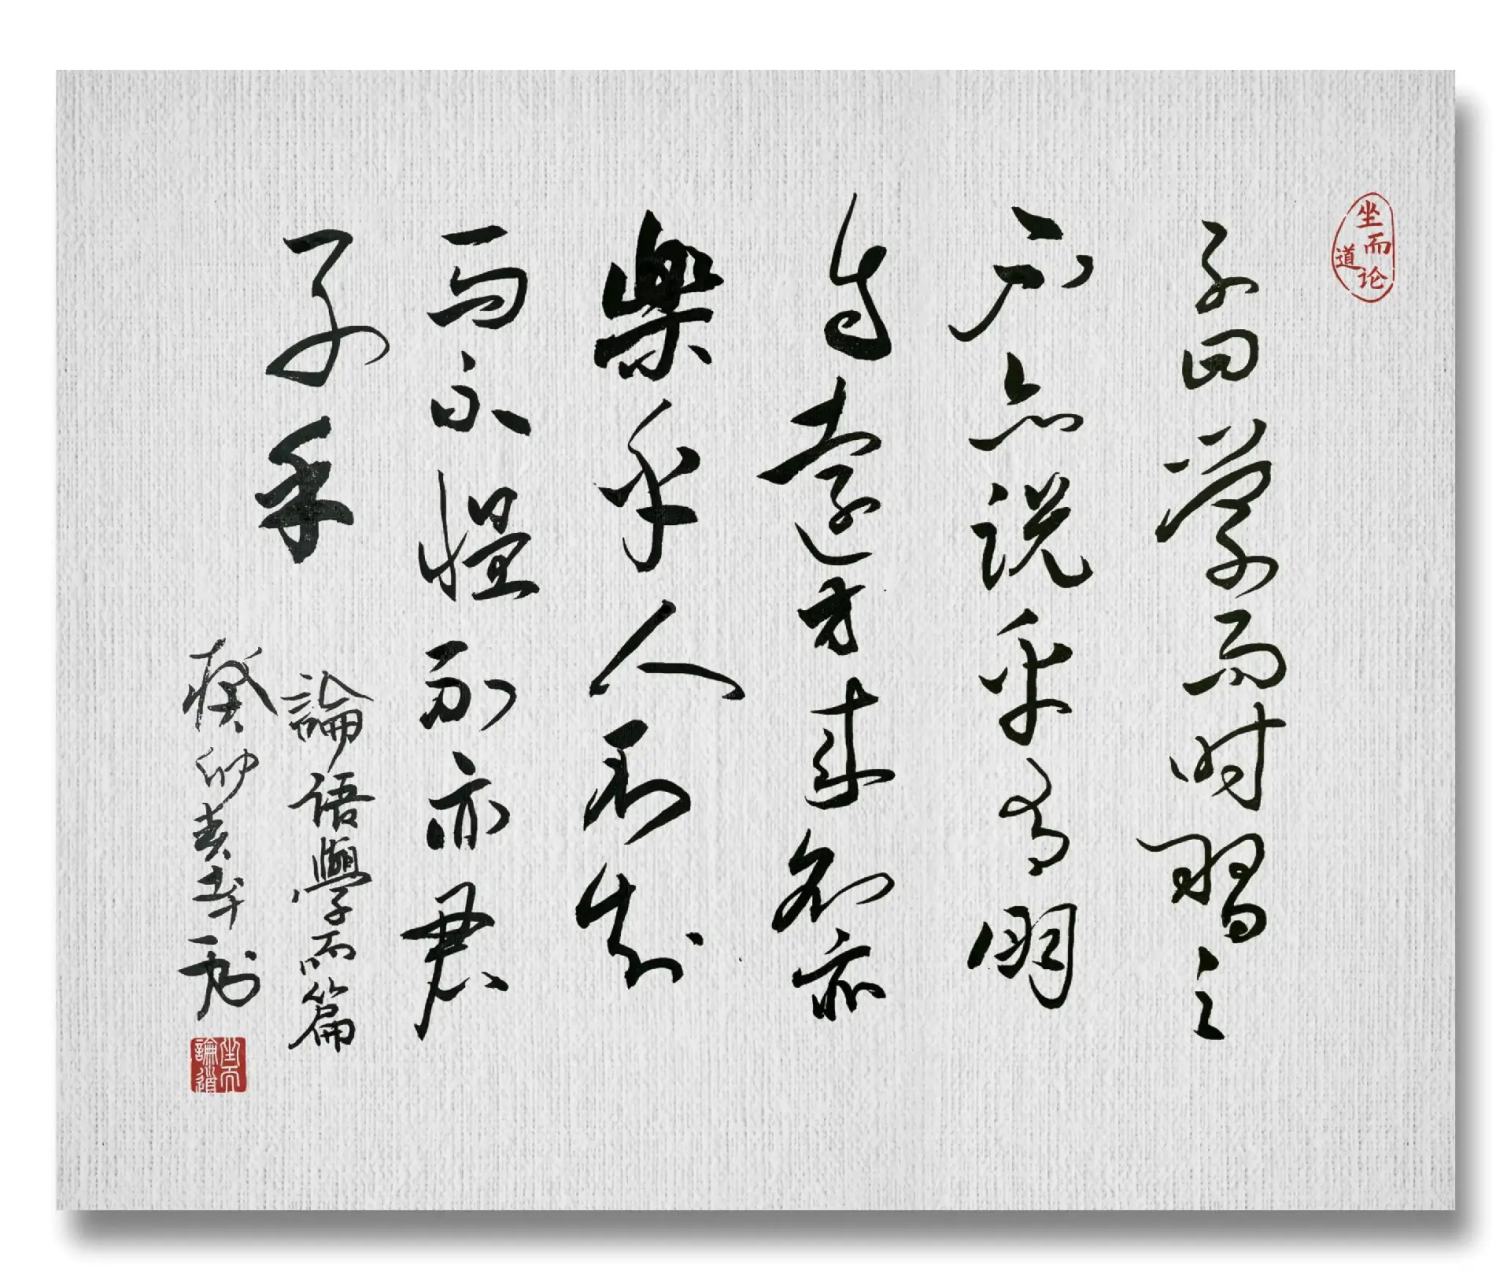 坐而论道
子曰学而时习之
不亦说乎有朋
自远方来不亦
樂乎人不知
而不愠不亦君
子乎
論语學而篇
癸卯
坐而論道